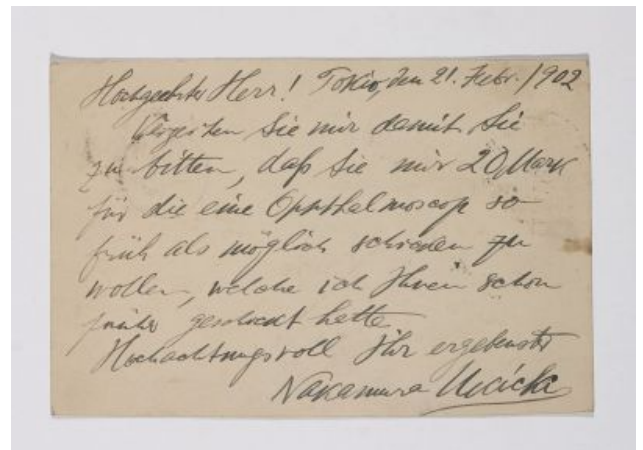 Hochgeehrter Herr! Tokio, den 21. Febr. 1902
Sie mir damit Sie
zu bitten, daß Sie mir 20 Mark
für die eine Ophthalmoscop so
früh als möglich schicken zu
wollen, welche ich Ihnen schon
früher geschickt hatte
Hochachtungsvoll Ihr ergebenster
Nakamura